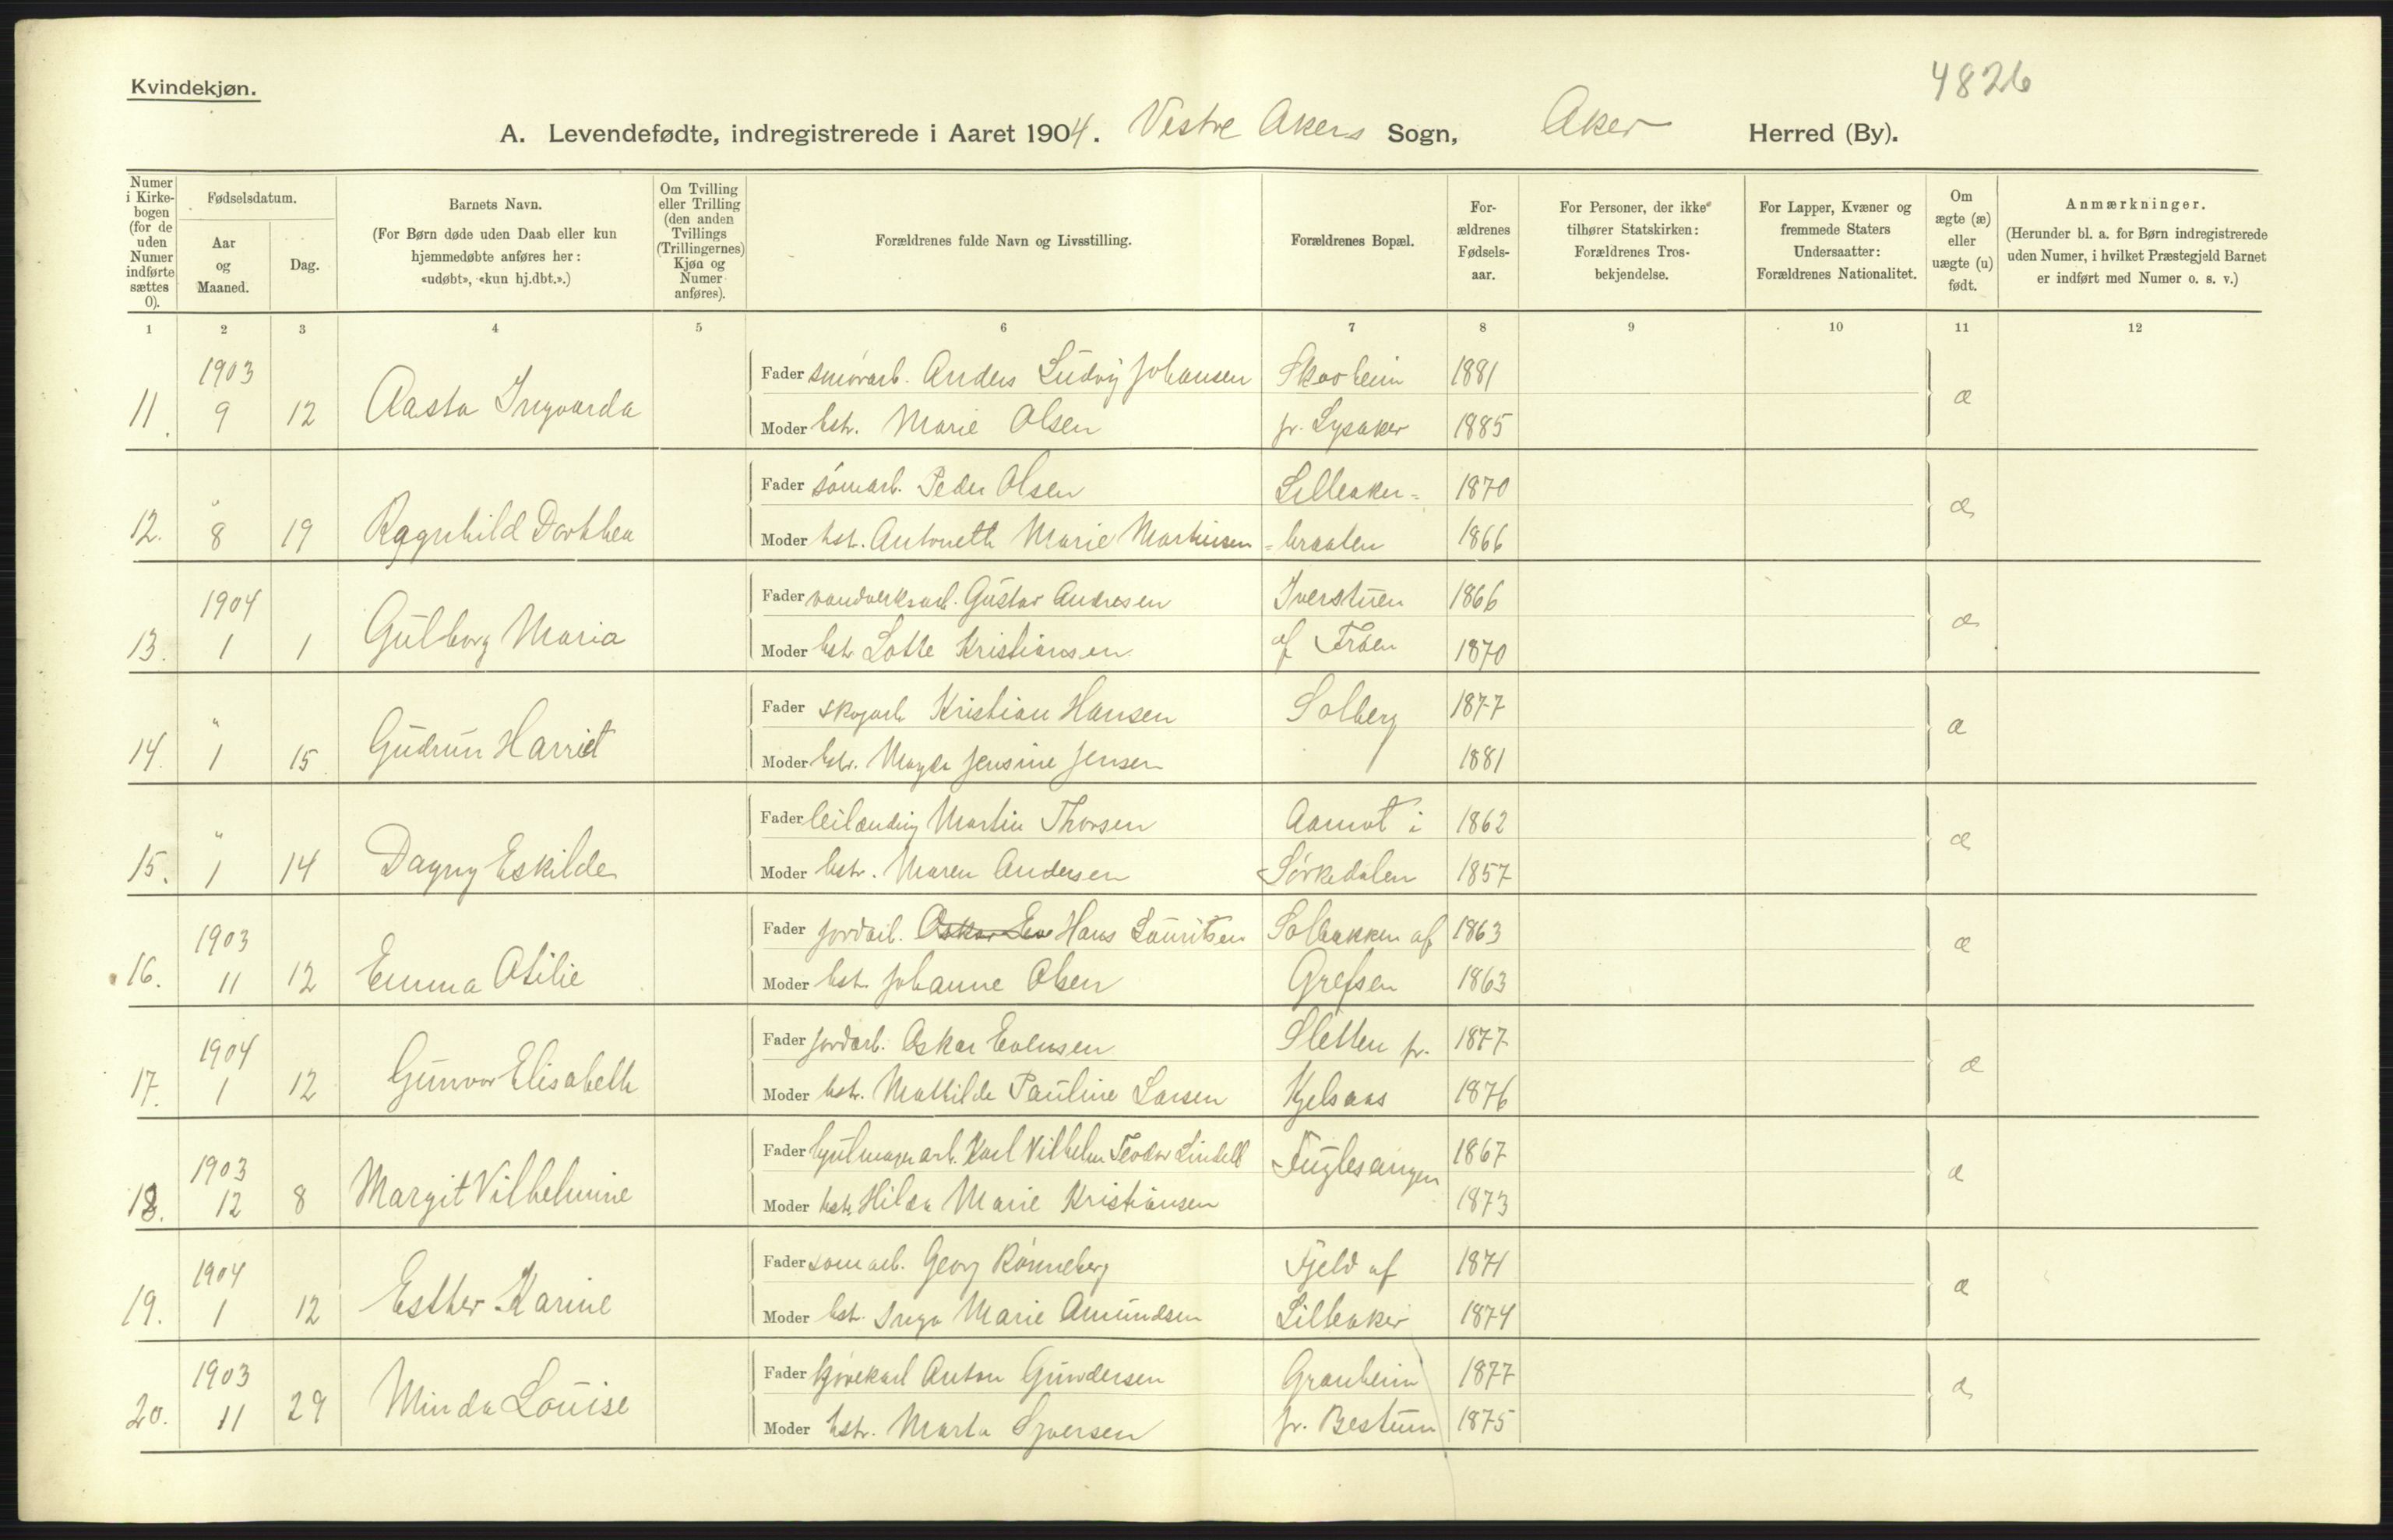 4826
Kvindekjøn.
A. Levendefødte, indregistrerede i Aaret 1904. Vestre Akers Sogn, Aker Herred (By).
Numer i Kirke-bogen (for de uden Numer indførte sættes 0).
Fødselsdatum.
Aar og Maaned.
Dag.
Barnets Navn.
(For Børn døde uden Daab eller kun hjemmedøbte anføres her: «udøbt», «kun hj.dbt.».)
Om Tvilling eller Trilling (den anden Tvillings (Trillingernes) Kjøn og Numer anføres).
Forældrenes fulde Navn og Livsstilling.
Forældrenes Bopæl.
For-ældrenes Fødsels-aar.
For Personer, der ikke tilhører Statskirken: Forældrenes Tros-bekjendelse.
For Lapper, Kvæner og fremmede Staters Undersaatter: Forældrenes Nationalitet.
Om ægte (æ) eller uægte (u) født.
Anmærkninger.
(Herunder bl. a. for Børn indregistrerede uden Numer, i hvilket Præstegjeld Barnet er indført med Numer o. s. v.)
1 2 3 4 5 6 7 8 9 10 11 12
1903 Fader Anders Ludvig Johansen Skogheim 1881
11. 9 12 Aasta Ingvarda æ
Moder hstr. Marie Olsen pr. Lysaker 1885
" Fader Peder Olsen Lilleaker- 1870
12. 8 19 Ragnhild Dorthea æ
Moder hst. Antoneth Marie Martinsen -braaten 1866
1904 Fader vandverksarb. Gustav Andresen Iverstuen 1866
13. 1 1 Gulborg Maria æ
Moder hstr Lotte Kristiansen af Frøen 1870
" Fader skogarb Kristian Hansen Solberg 1877
14. 1 15 Gudrun Harriet æ
Moder hstr. Magda Jensine Jensen 1881
" Fader leilænding Martin Thorsen Aamot i 1862
15. 1 14 Dagny Eskilde æ
Moder hstr. Maren Andersen Sørkedalen 1857
1903 Fader jordarb. Oskar Eve Hans Lauritsen Solbakken af 1863
16. 11 12 Emma Otilie æ
Moder hst. Johanne Olsen Grefsen 1863
1904 Fader jordarb. Oskar Evensen Sletten pr. 1877
17. 1 12 Gunvor Elisabeth æ
Moder hstr. Mathilde Pauline Larsen Kjelsaas 1876
1903 Fader hjulmagerarb. Karl Vilhelm Teodor Lindell Fuglesangen 1867
18. 12 8 Margit Vilhelmine æ
Moder hstr Hilda Marie Kristiansen 1873
1904 Fader Georg Rønneberg Fjeld af 1871
19. 1 12 Esther Karine æ
Moder hst. Inga Marie Amundsen Lilleaker 1874
1903 Fader Anton Gundersen Granheim 1877
20. 11 29 Minda Louise æ
Moder hstr. Marta Syversen pr. Bestum 1875